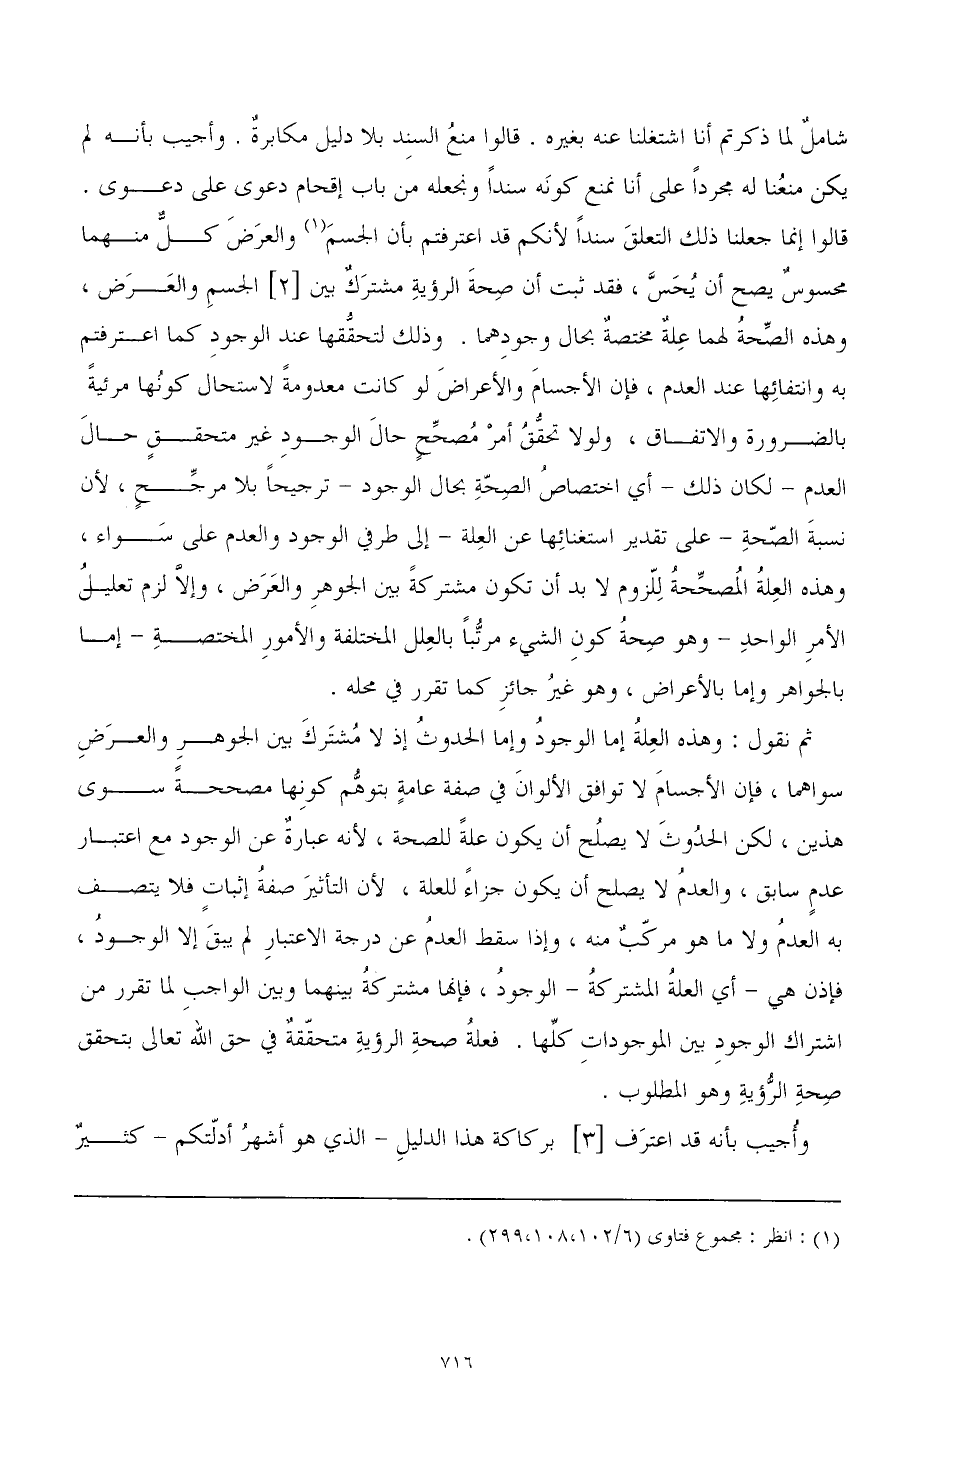 شاملٌ لما ذكرتم أنا اشتغلنا عنه بغيره . قالوا منعُ السندِ بلا دليل مكابرةٌ . وأجيب بأنه لم
يكن منعُنا له مجرداً على أنا نمنع كونَه سنداً ونجعله من باب إقحام دعوى على دعوى .
قالوا إنما جعلنا ذلك التعلقَ سنداً لأنكم قد اعترفتم بأن الجسمَ(١) والعرَضَ كلٌّ منهما
محسوسٌ يصح أن يُحَسَّ ، فقد ثبت أن صِحةَ الرؤيةِ مشتركٌ بين [٢] الجسمِ والعَرَض ،
وهذه الصِّحةُ لهما عِلةٌ مختصةٌ بحال وجودِهما . وذلك لتحقُّقها عند الوجودِ كما اعترفتم
به وانتفائِها عند العدم ، فإن الأجسامَ والأعراضَ لو كانت معدومةً لاستحال كونُها مرئيةً
بالضرورة والاتفاق ، ولولا تحقُّقُ أمرٌ مُصحِّحٍ حالَ الوجود غير متحققٍ حالَ
العدم - لكان ذلك - أي اختصاصُ الصِحّةِ بحال الوجود - ترجيحاً بلا مرجِّحٍ ، لأن
نسبةَ الصّحةِ - على تقدير استغنائِها عن العِلة - إلى طرفي الوجود والعدم على سَواء ،
وهذه العِلةُ المُصحِّحةُ لِلّزوم لا بد أن تكون مشتركةً بين الجوهرِ والعَرَض ، وإلاَّ لزم تعليلُ
الأمرِ الواحدِ - وهو صِحةُ كونِ الشيء مرتُّباً بالعِلل المختلفة والأمورِ المختصةِ - إما
بالجواهر وإما بالأعراض ، وهو غيرُ جائزٍ كما تقرر في محله .
ثم نقول : وهذه العِلةُ إما الوجودُ وإما الحدوثُ إذ لا مُشتَركَ بين الجوهرِ والعرَضِ
سواهما ، فإن الأجسامَ لا توافق الألوانَ في صفة عامةٍ بتوهُّم كونِها مصححةً سوى
هذين ، لكن الحدُوثَ لا يصلُح أن يكون علةً للصحة ، لأنه عبارةٌ عن الوجود مع اعتبار
عدمٍ سابق ، والعدمُ لا يصلح أن يكون جزاءً للعلة ، لأن التأثيرَ صفةُ إثباتٍ فلا يتصف
به العدمُ ولا ما هو مركّبٌ منه ، وإذا سقط العدمُ عن درجة الاعتبارِ لم يبقَ إلا الوجودُ ،
فإذن هي - أي العلةُ المشتركةُ - الوجودُ ، فإنها مشتركةُ بينهما وبين الواجبِ لما تقرر من
اشتراك الوجودِ بين الموجوداتِ كلِّها . فعلةُ صحةِ الرؤيةِ متحقّقةٌ في حق الله تعالى بتحقق
صِحةِ الرُّؤيةِ وهو المطلوب .
وأُجيب بأنه قد اعترَف [٣] بركاكة هذا الدليلِ - الذي هو أشهرُ أدلّتكم - كثيرٌ
(١) : انظر : مجموع فتاوى (١٠٢/٦،١٠٨،٢٩٩) .
٧١٦